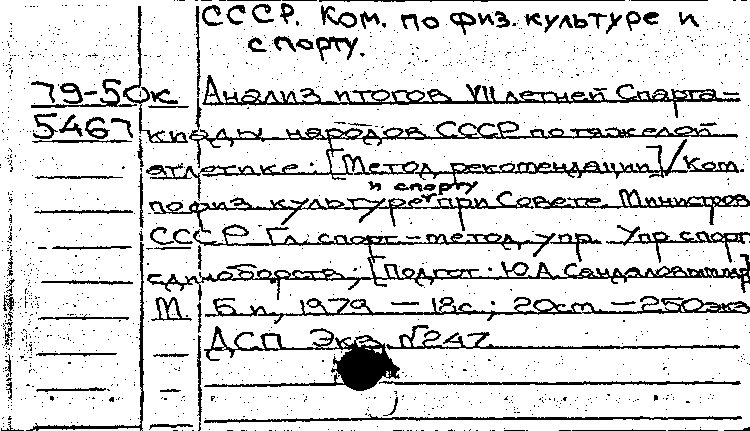 СССР. Ком. по физ. культуре и
спорту.
79-50к Анализ итогов VII летней Спарта-
5467 киады народов СССР по тяжелой
атлетике: [Метод. рекомендации] / Ком.
и спорту
по физ. культуре при Совете Министров
СССР. Гл. спорт.-метод. упр. Упр. спорт.
единоборств; [Подгот. Ю.А. Сандаловым и др.]
М. Б.и., 1979 — 18с.; 20см. — 250экз
ДСП Экз. №247.